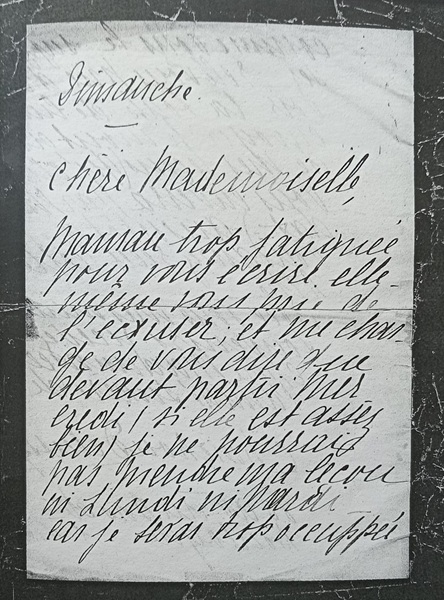 Dimanche.
Chère Mademoiselle,
Maman trop fatiguée
pour vous écrire elle-
même vous prie de
l'excuser; et me char-
ge de vous dire que
devant partir mer
credi (si elle est assez
bien) je ne pourrais
pas prendre ma leçon
ni Lundi ni Mardi
car je serai trop occuppée